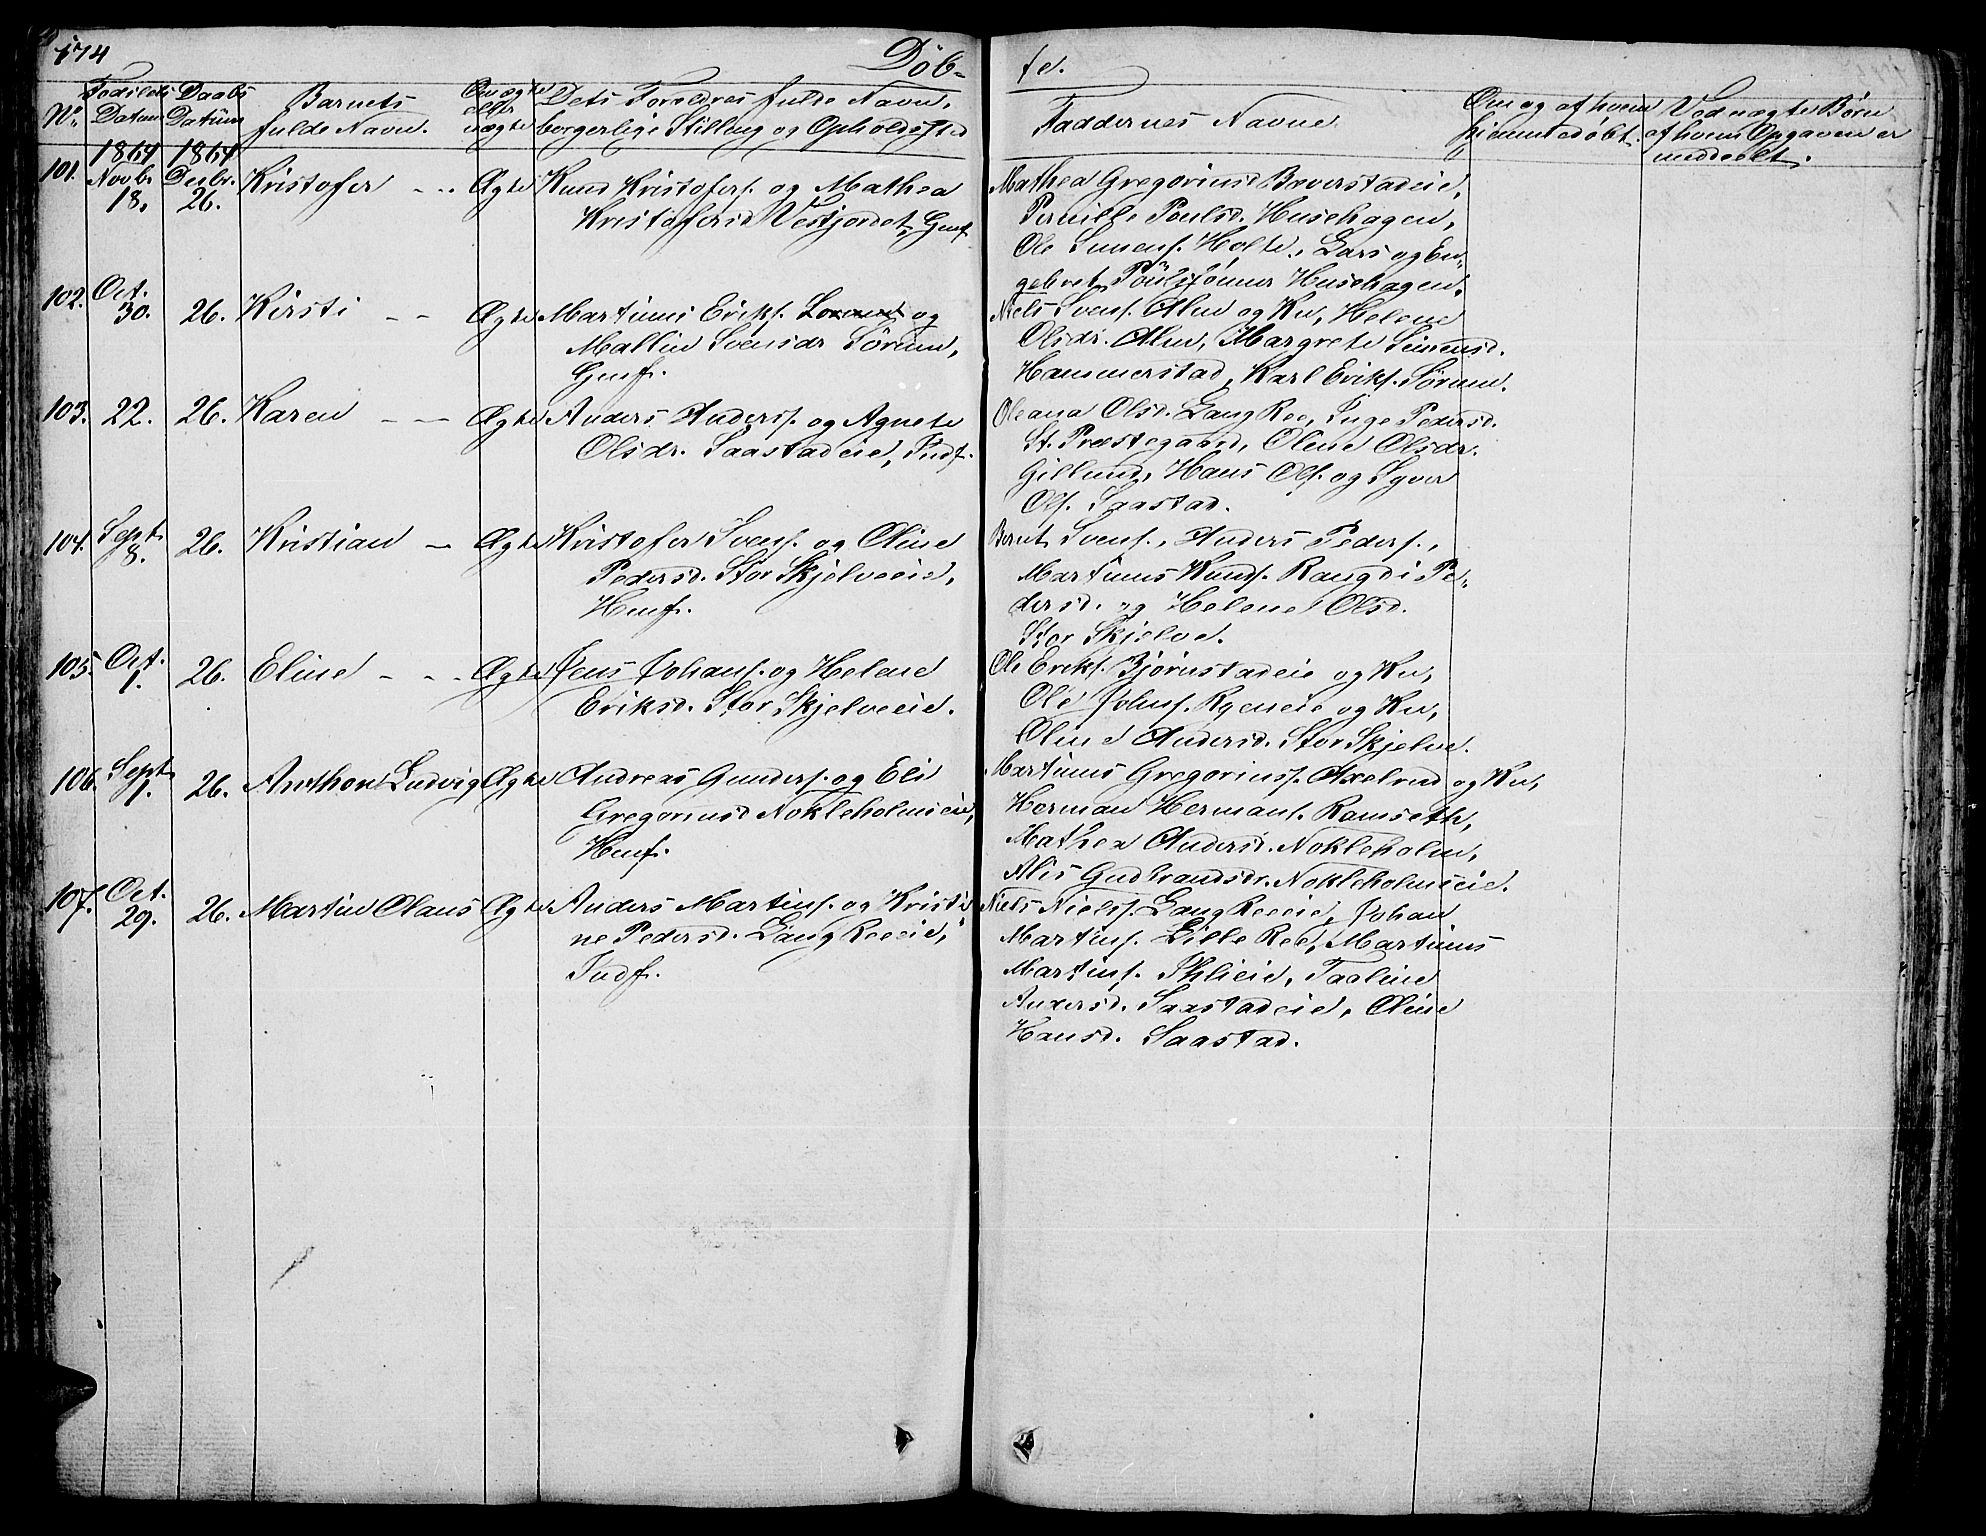 174
Døb-
te.
No.
Fødsels
Datum
Daabs
Datum
Barnets
fulde Navn.
Om ægte
eller
uægte
Dets Forældres fulde Navn,
borgerlige Stilling og Opholdssted
Faddernes Navne
Om og af hvem
hjemmedøbt.
Ved uægte Børn
af hvem Opgaven er
meddeelt.
101.
1864
Novbr
18.
1864
Decbr.
26.
Kristofer - - -
Ægte
Knud Kristofers. og Mathea
Kristofersd Vestjordet, Gmf.
Mathea Gregoriusd Bæverstadeie,
Pernille Poulsd. Husehagen,
Ole Simens. Holte, Lars og En-
gebret Poulsønner Husehagen.
102.
Oct.
30.
26.
Kirsti - -
Ægte
Martinus Eriks. og
Mallin Svensdr Sørum,
Gmf.
Niels Svens. Alm og Ku, Helene
Olsdr. Alm, Margrete Simensd.
Hammerstad, Karl Eriks. Sørum.
103.
22.
26.
Karen - - -
Ægte
Anders Anders. og Agnete
Olsdr. Saastadeie, Indf.
Oleana Olsd. Lang Ree, Inge Pedersd.
St. Præstegaard, Oline Olsdr.
Gillund, Hans Ols. og Syver
Ols. Saastad.
104.
Sept.
8.
26.
Kristian -
Ægte
Kristofer Svens. og Oline
Pedersd. Stor Skjelveeie,
Hmf.
Bernt Svens., Anders Peders.,
Martinus Knuds. Rangdi Pe-
dersd. og Helene Olsd.
Stor Skjelve.
105.
Oct.
1.
26.
Eline - - -
Ægte
Jens Johans. og Helene
Eriksd. Stor Skjelveeie.
Ole Eriks. Bjørnstadeie og Ku,
Ole Johns. Ryeneie og Ku,
Oline Andersd. Stor Skjelve.
106.
Sept.
1.
26.
Anthon Ludvig
Ægte
Andreas Gunders. og Eli
Gregoriusd Nokleholmeie,
Hmf.
Martinus Gregoriuss. Axelrud og Ku,
Herman Hermans. Ramseth,
Mathea Andersd. Nokleholm,
Alis Gudbrandsdr. Nokleholmseie.
107.
Oct.
29.
26.
Martin Olaus
Ægte
Anders Martins. og Kristi-
ne Pedersd. Lang Reeeie,
Indf.
Niels Niels. Lang Reeeie, Johan
Martins. Lille Ree, Martinus
Martins. Ihlieie, Taaline
Andersd. Saastadeie, Oline
Hansd. Saastad.